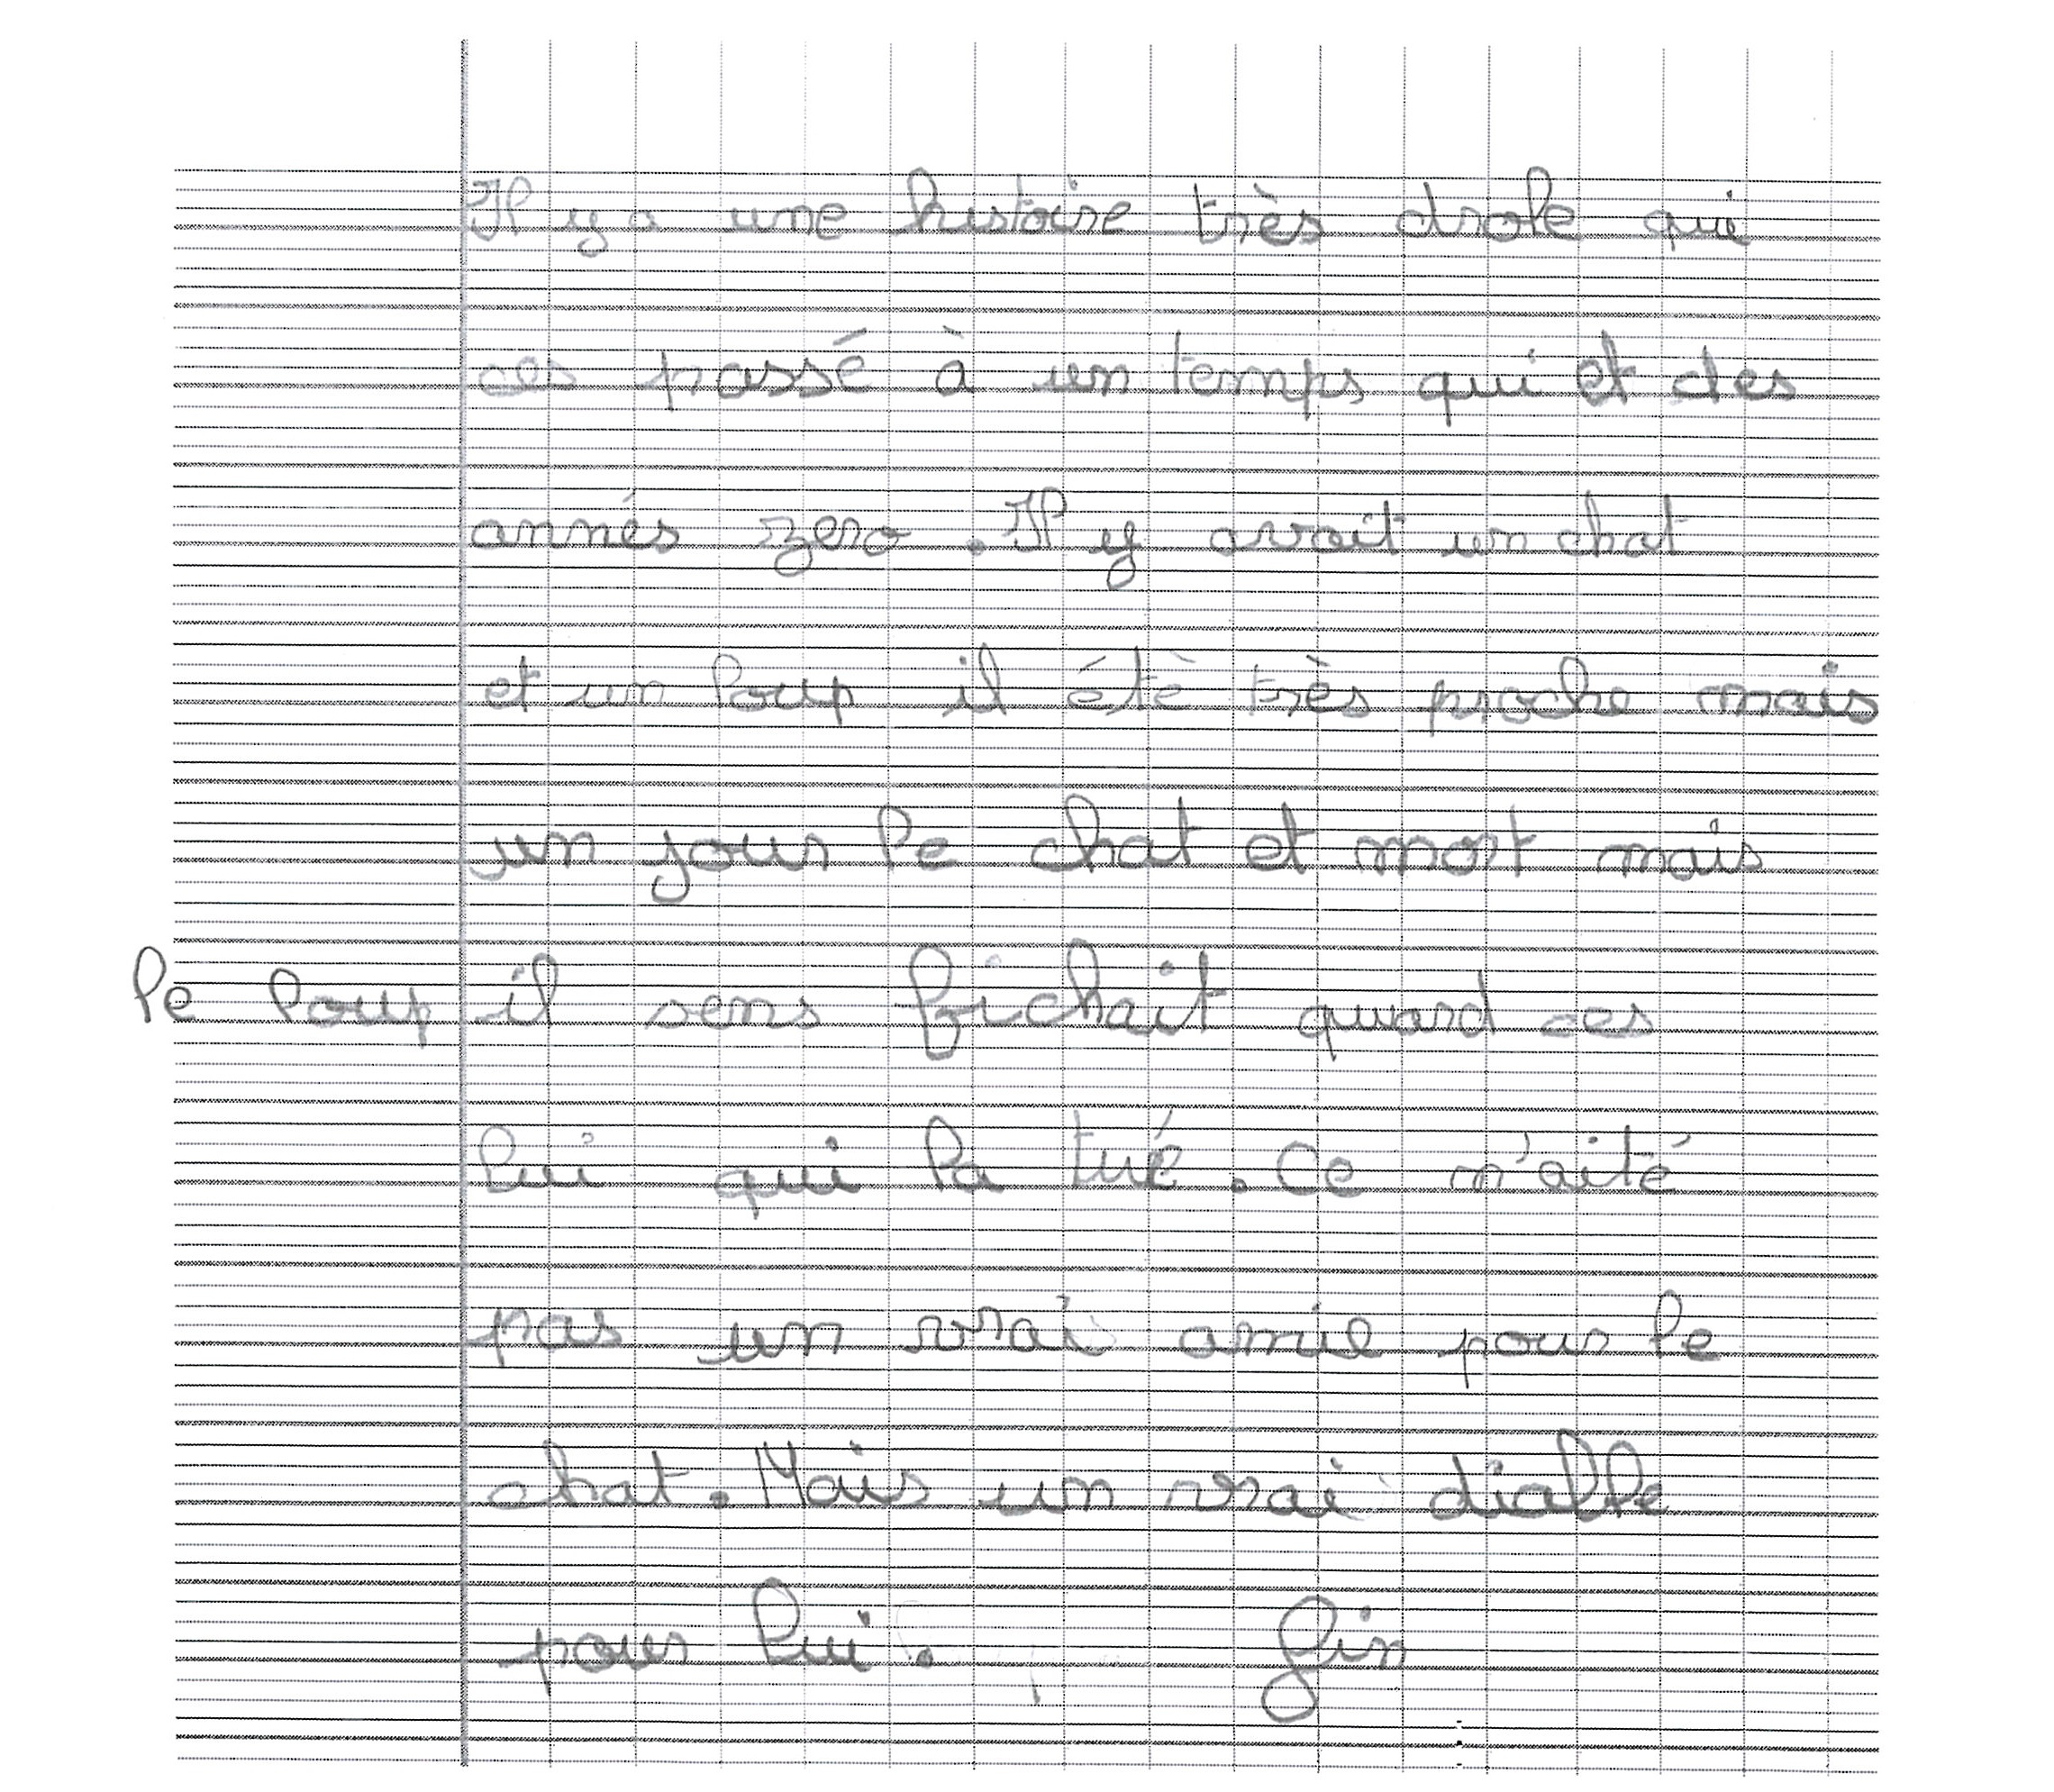 Il y a une histoire très drole qui
ces passé à un temps qui et des
annés zero. Il y avait un chat
et un loup il étè très proche mais
un jour le chat et mort mais
le loup il sens fichait quand ces
lui qui la tué. Ce n'aité
pas un vrai amie pour le
chat. Mais un vrai diable
pour lui. fin